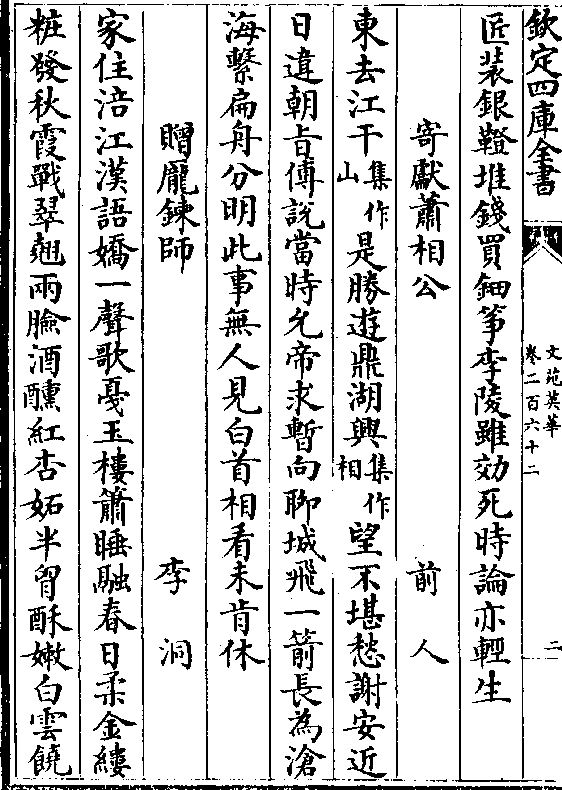 欽定四庫全書
文苑英華
卷二百六十二
二
匠装銀鞾堆錢買鈿筝李陵雖効死時論亦輕生
寄獻蕭相公 前人
東去江干集作山是勝遊鼎湖興集作相望不堪愁謝安近
日違朝旨傅說當時允帝求暫向聊城飛一箭長為滄
海繫扁舟分明此事無人見白首相看未肯休
贈龎鍊師 李洞
家住涪江漢語嬌一聲歌戞玉樓簫睡融春日柔金縷
粧發秋霞戰翠翹兩臉酒醺紅杏妬半胷酥嫩白雲饒